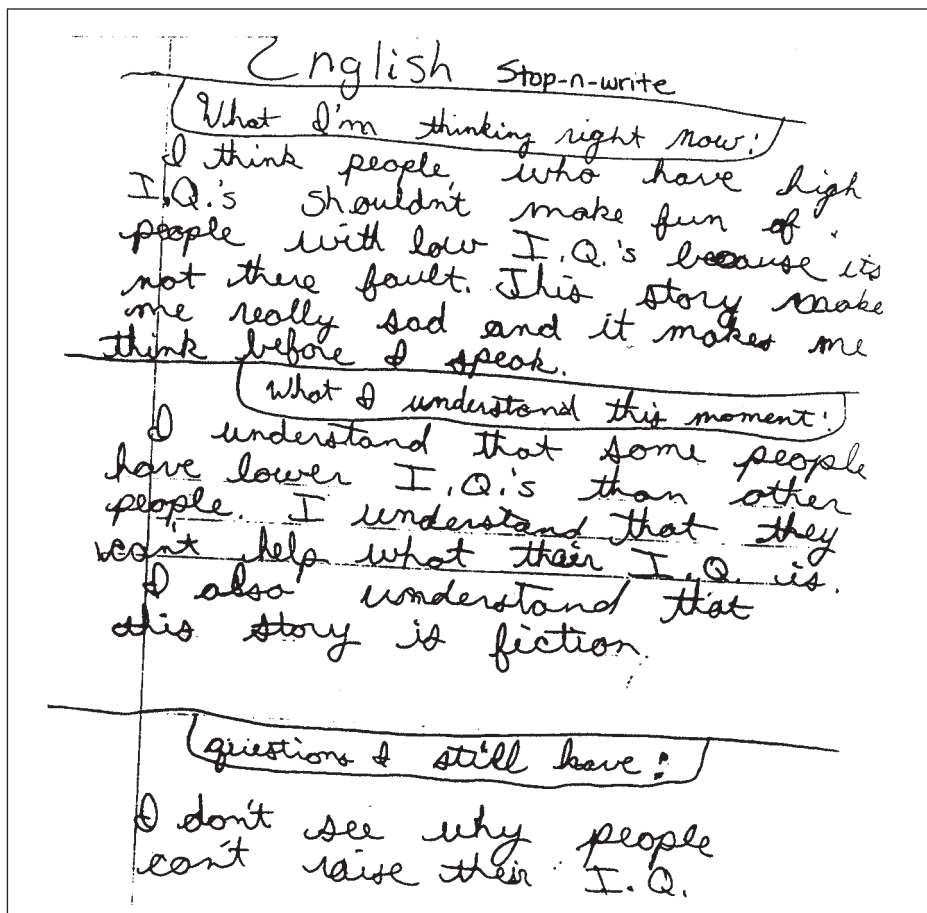 English Stop-n-write
What I'm thinking right now:
I think people who have high
I.Q.'s shouldn't make fun of
people with low I.Q.'s because its
not there fault. This story make
me really sad and it makes me
think before I speak.
What I understand this moment:
I understand that some people
have lower I.Q.'s than other
people. I understand that they
can't help what their I.Q. is.
I also understand that
this story is fiction.
questions I still have:
I don't see why people
can't raise their I.Q.